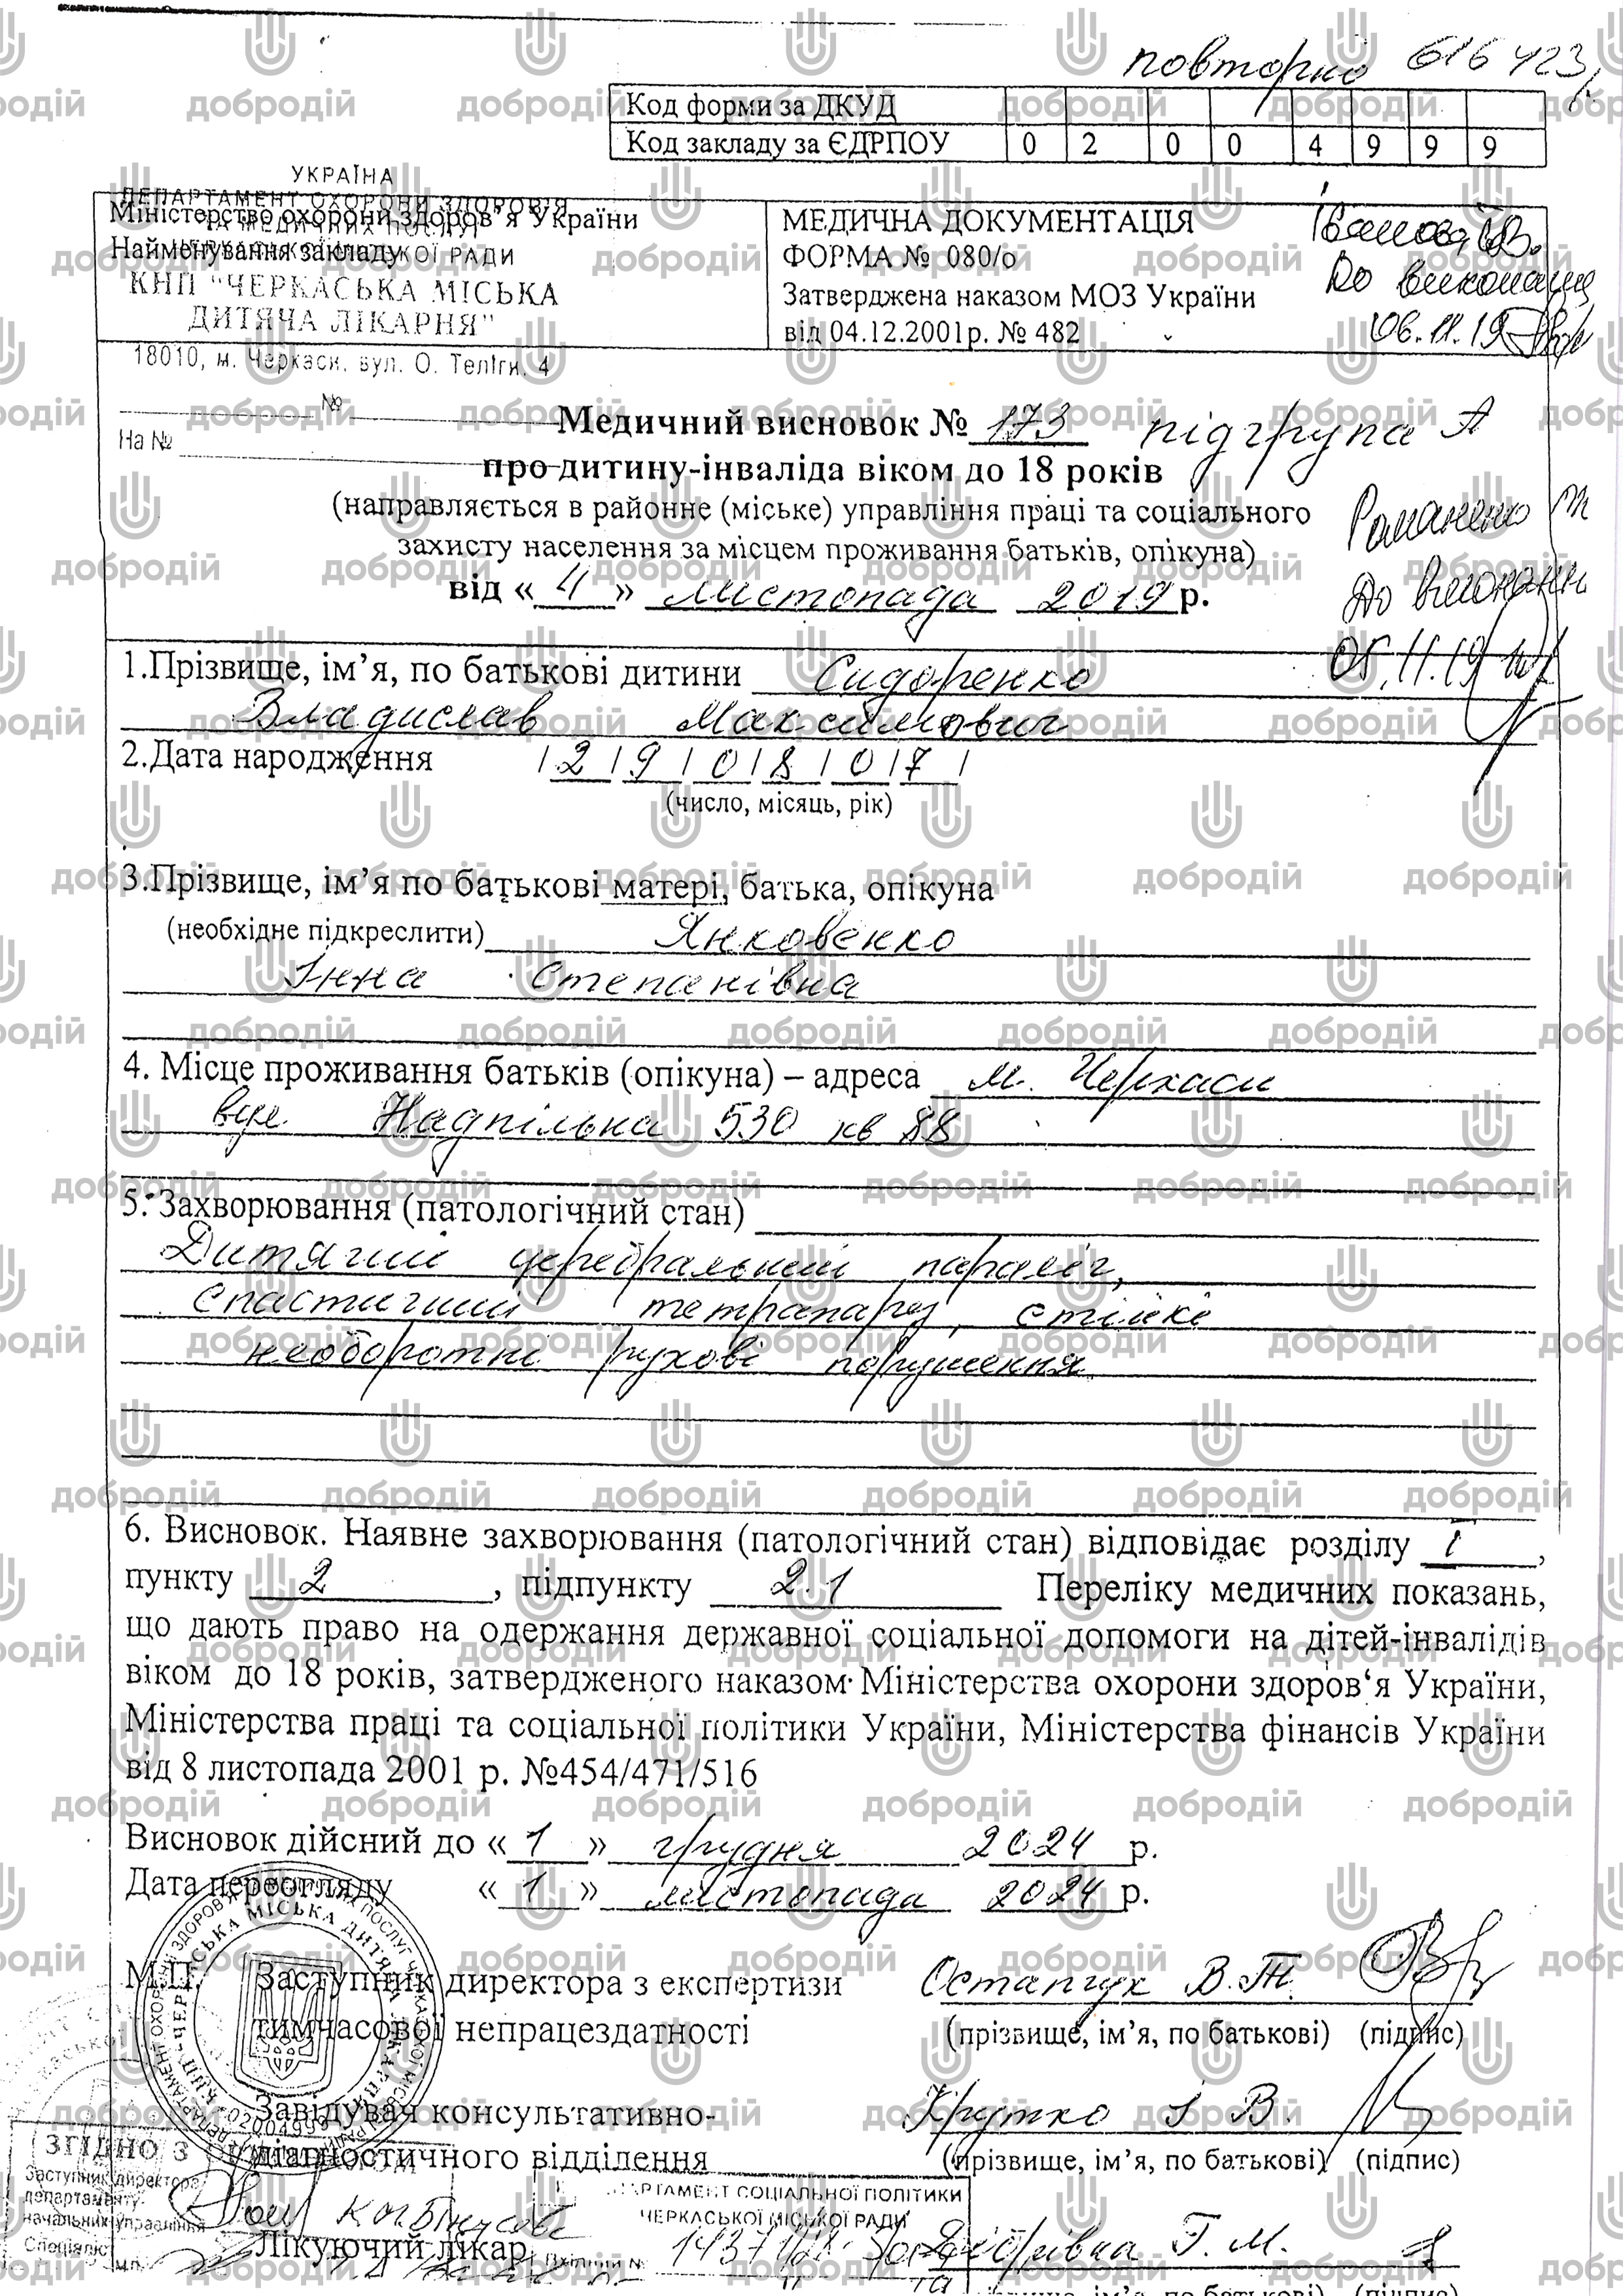 повторно 616423/
Код форми за ДКУД
Код закладу за ЄДРПОУ 0 2 0 0 4 9 9 9
УКРАЇНА
ДЕПАРТАМЕНТ ОХОРОНИ ЗДОРОВ'Я
ТА МЕДИЧНИХ ПОСЛУГ
Міністерство охорони здоров'я України
Найменування закладу
КОЇ РАДИ
КНП "ЧЕРКАСЬКА МІСЬКА
ДИТЯЧА ЛІКАРНЯ"
18010, м. Черкаси, вул. О. Теліги, 4
№
На №
МЕДИЧНА ДОКУМЕНТАЦІЯ
ФОРМА № 080/о
Затверджена наказом МОЗ України
від 04.12.2001р. № 482
До виконання
06.11.19
Медичний висновок № 173 підгрупа А
про дитину-інваліда віком до 18 років
(направляється в районне (міське) управління праці та соціального
захисту населення за місцем проживання батьків, опікуна)
від « 4 » листопада 2019 р.
Романенко
До виконання
05.11.19
1.Прізвище, ім'я, по батькові дитини Сидоренко
Владислав Максимович
2.Дата народження 2 9 0 8 0 7
(число, місяць, рік)
3.Прізвище, ім'я по батькові матері, батька, опікуна
(необхідне підкреслити) Янковенко
Інна Степанівна
4. Місце проживання батьків (опікуна) – адреса м. Черкаси
вул. Надпільна 530 кв 88
5. Захворювання (патологічний стан)
Дитячий церебральний параліч,
спастичний тетрапарез, стійкі
необоротні рухові порушення.
6. Висновок. Наявне захворювання (патологічний стан) відповідає розділу I ,
пункту 2 , підпункту 2.1 Переліку медичних показань,
що дають право на одержання державної соціальної допомоги на дітей-інвалідів
віком до 18 років, затвердженого наказом Міністерства охорони здоров'я України,
Міністерства праці та соціальної політики України, Міністерства фінансів України
від 8 листопада 2001 р. №454/471/516
Висновок дійсний до « 1 » грудня 2024 р.
Дата переогляду « 1 » листопада 2024 р.
М.П. Заступник директора з експертизи Остапчук В.Т.
тимчасової непрацездатності (прізвище, ім'я, по батькові) (підпис)
Завідувач консультативно- Крутко І В.
діагностичного відділення (прізвище, ім'я, по батькові) (підпис)
ЗГІДНО З
Заступник директора
департаменту-
начальник управління
Спеціаліс
М.П.
02004999
ДЕПАРТАМЕНТ СОЦІАЛЬНОЇ ПОЛІТИКИ
ЧЕРКАСЬКОЇ МІСЬКОЇ РАДИ
Лікуючий лікар Г. М.
добродій